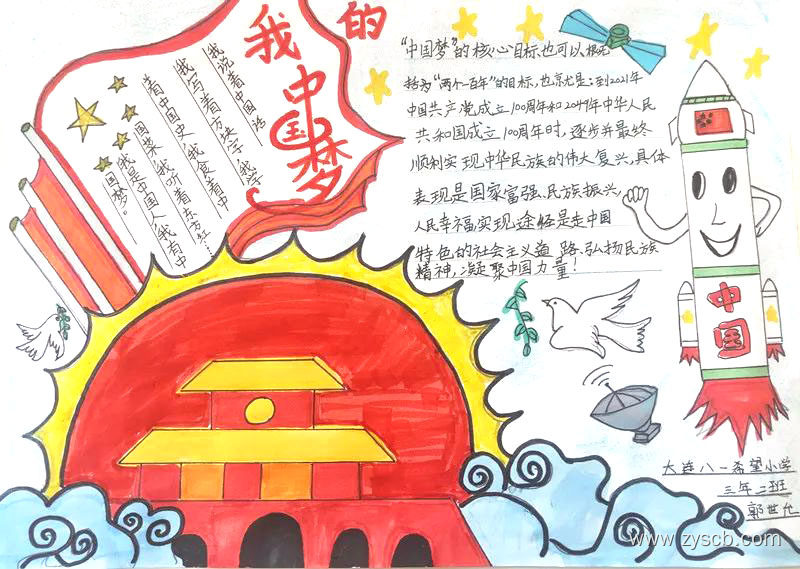 我的
中国梦
我说着中国话
我写着方块字 我学
着中国史 我食着中
国菜 我听着东方红！
我是中国人我有中
国梦。
“中国梦”的核心目标也可以概况
括为“两个一百年”的目标，也就是：到2021年
中国共产党成立100周年和2049年中华人民
共和国成立100周年时，逐步并最终
顺利实现中华民族的伟大复兴，具体
表现是国家富强、民族振兴，
人民幸福，实现途径是走中国
特色的社会主义道路，弘扬民族
精神，凝聚中国力量！
中国
大连八一希望小学
三年二班
郭世允
www.zyscb.com